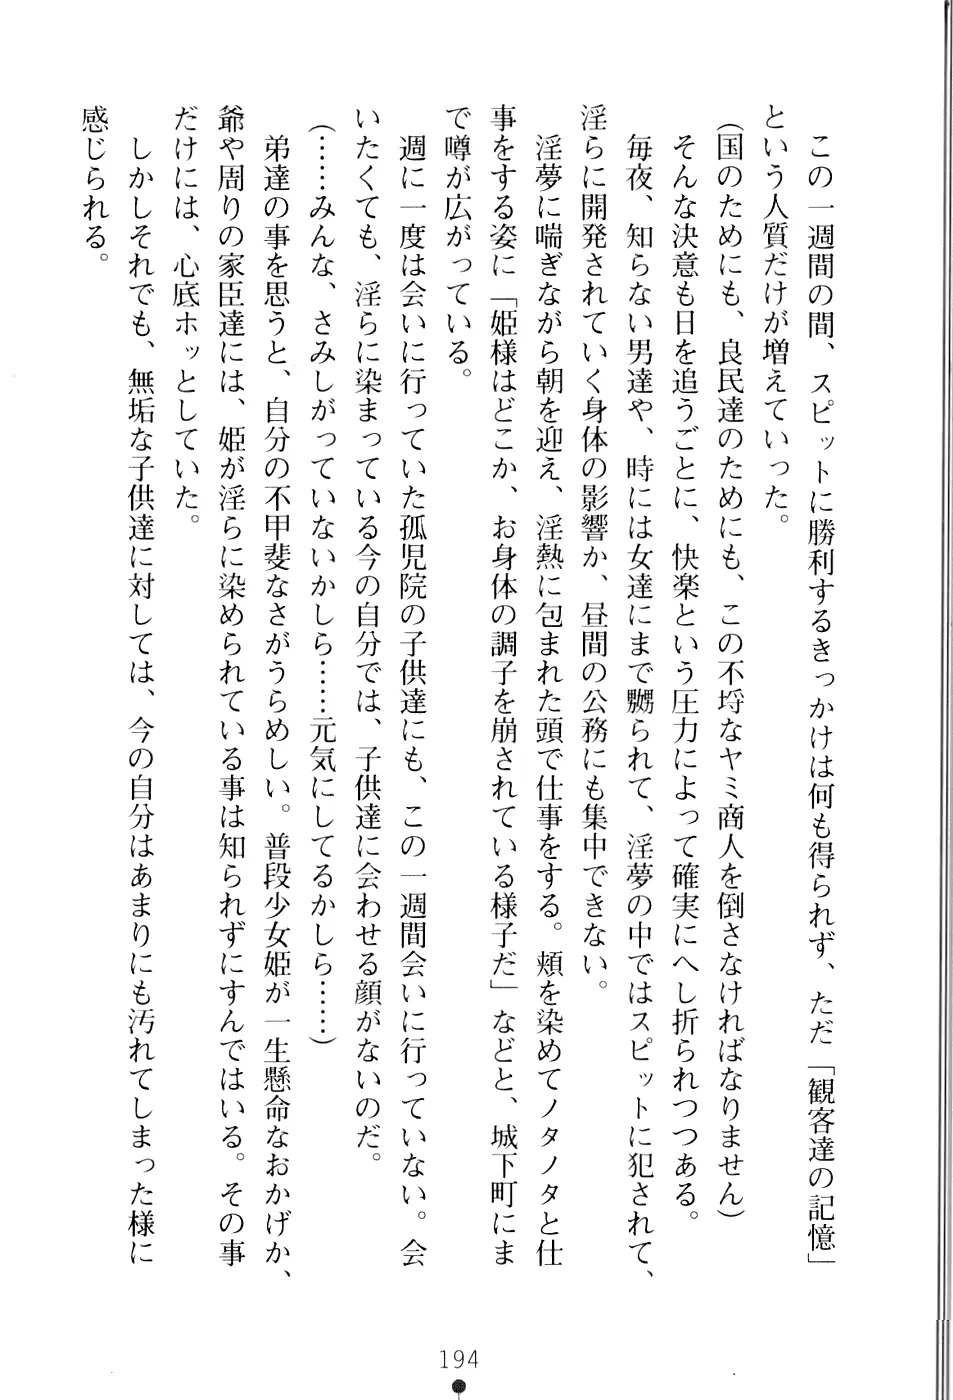 この一週間の間、スピットに勝利するきっかけは何も得られず、ただ「観客達の記憶」
という人質だけが増えていった。
（国のためにも、良民達のためにも、この不埒なヤミ商人を倒さなければなりません）
　そんな決意も日を追うごとに、快楽という圧力によって確実にへし折られつつある。
　毎夜、知らない男達や、時には女達にまで嬲られて、淫夢の中ではスピットに犯されて、
淫らに開発されていく身体の影響か、昼間の公務にも集中できない。
　淫夢に喘ぎながら朝を迎え、淫熱に包まれた頭で仕事をする。頬を染めてノタノタと仕
事をする姿に「姫様はどこか、お身体の調子を崩されている様子だ」などと、城下町にま
で噂が広がっている。
　週に一度は会いに行っていた孤児院の子供達にも、この一週間会いに行っていない。会
いたくても、淫らに染まっている今の自分では、子供達に会わせる顔がないのだ。
（……みんな、さみしがっていないかしら……元気にしてるかしら……）
　弟達の事を思うと、自分の不甲斐なさがうらめしい。普段少女姫が一生懸命なおかげか、
爺や周りの家臣達には、姫が淫らに染められている事は知られずにすんではいる。その事
だけには、心底ホッとしていた。
　しかしそれでも、無垢な子供達に対しては、今の自分はあまりにも汚れてしまった様に
感じられる。
194